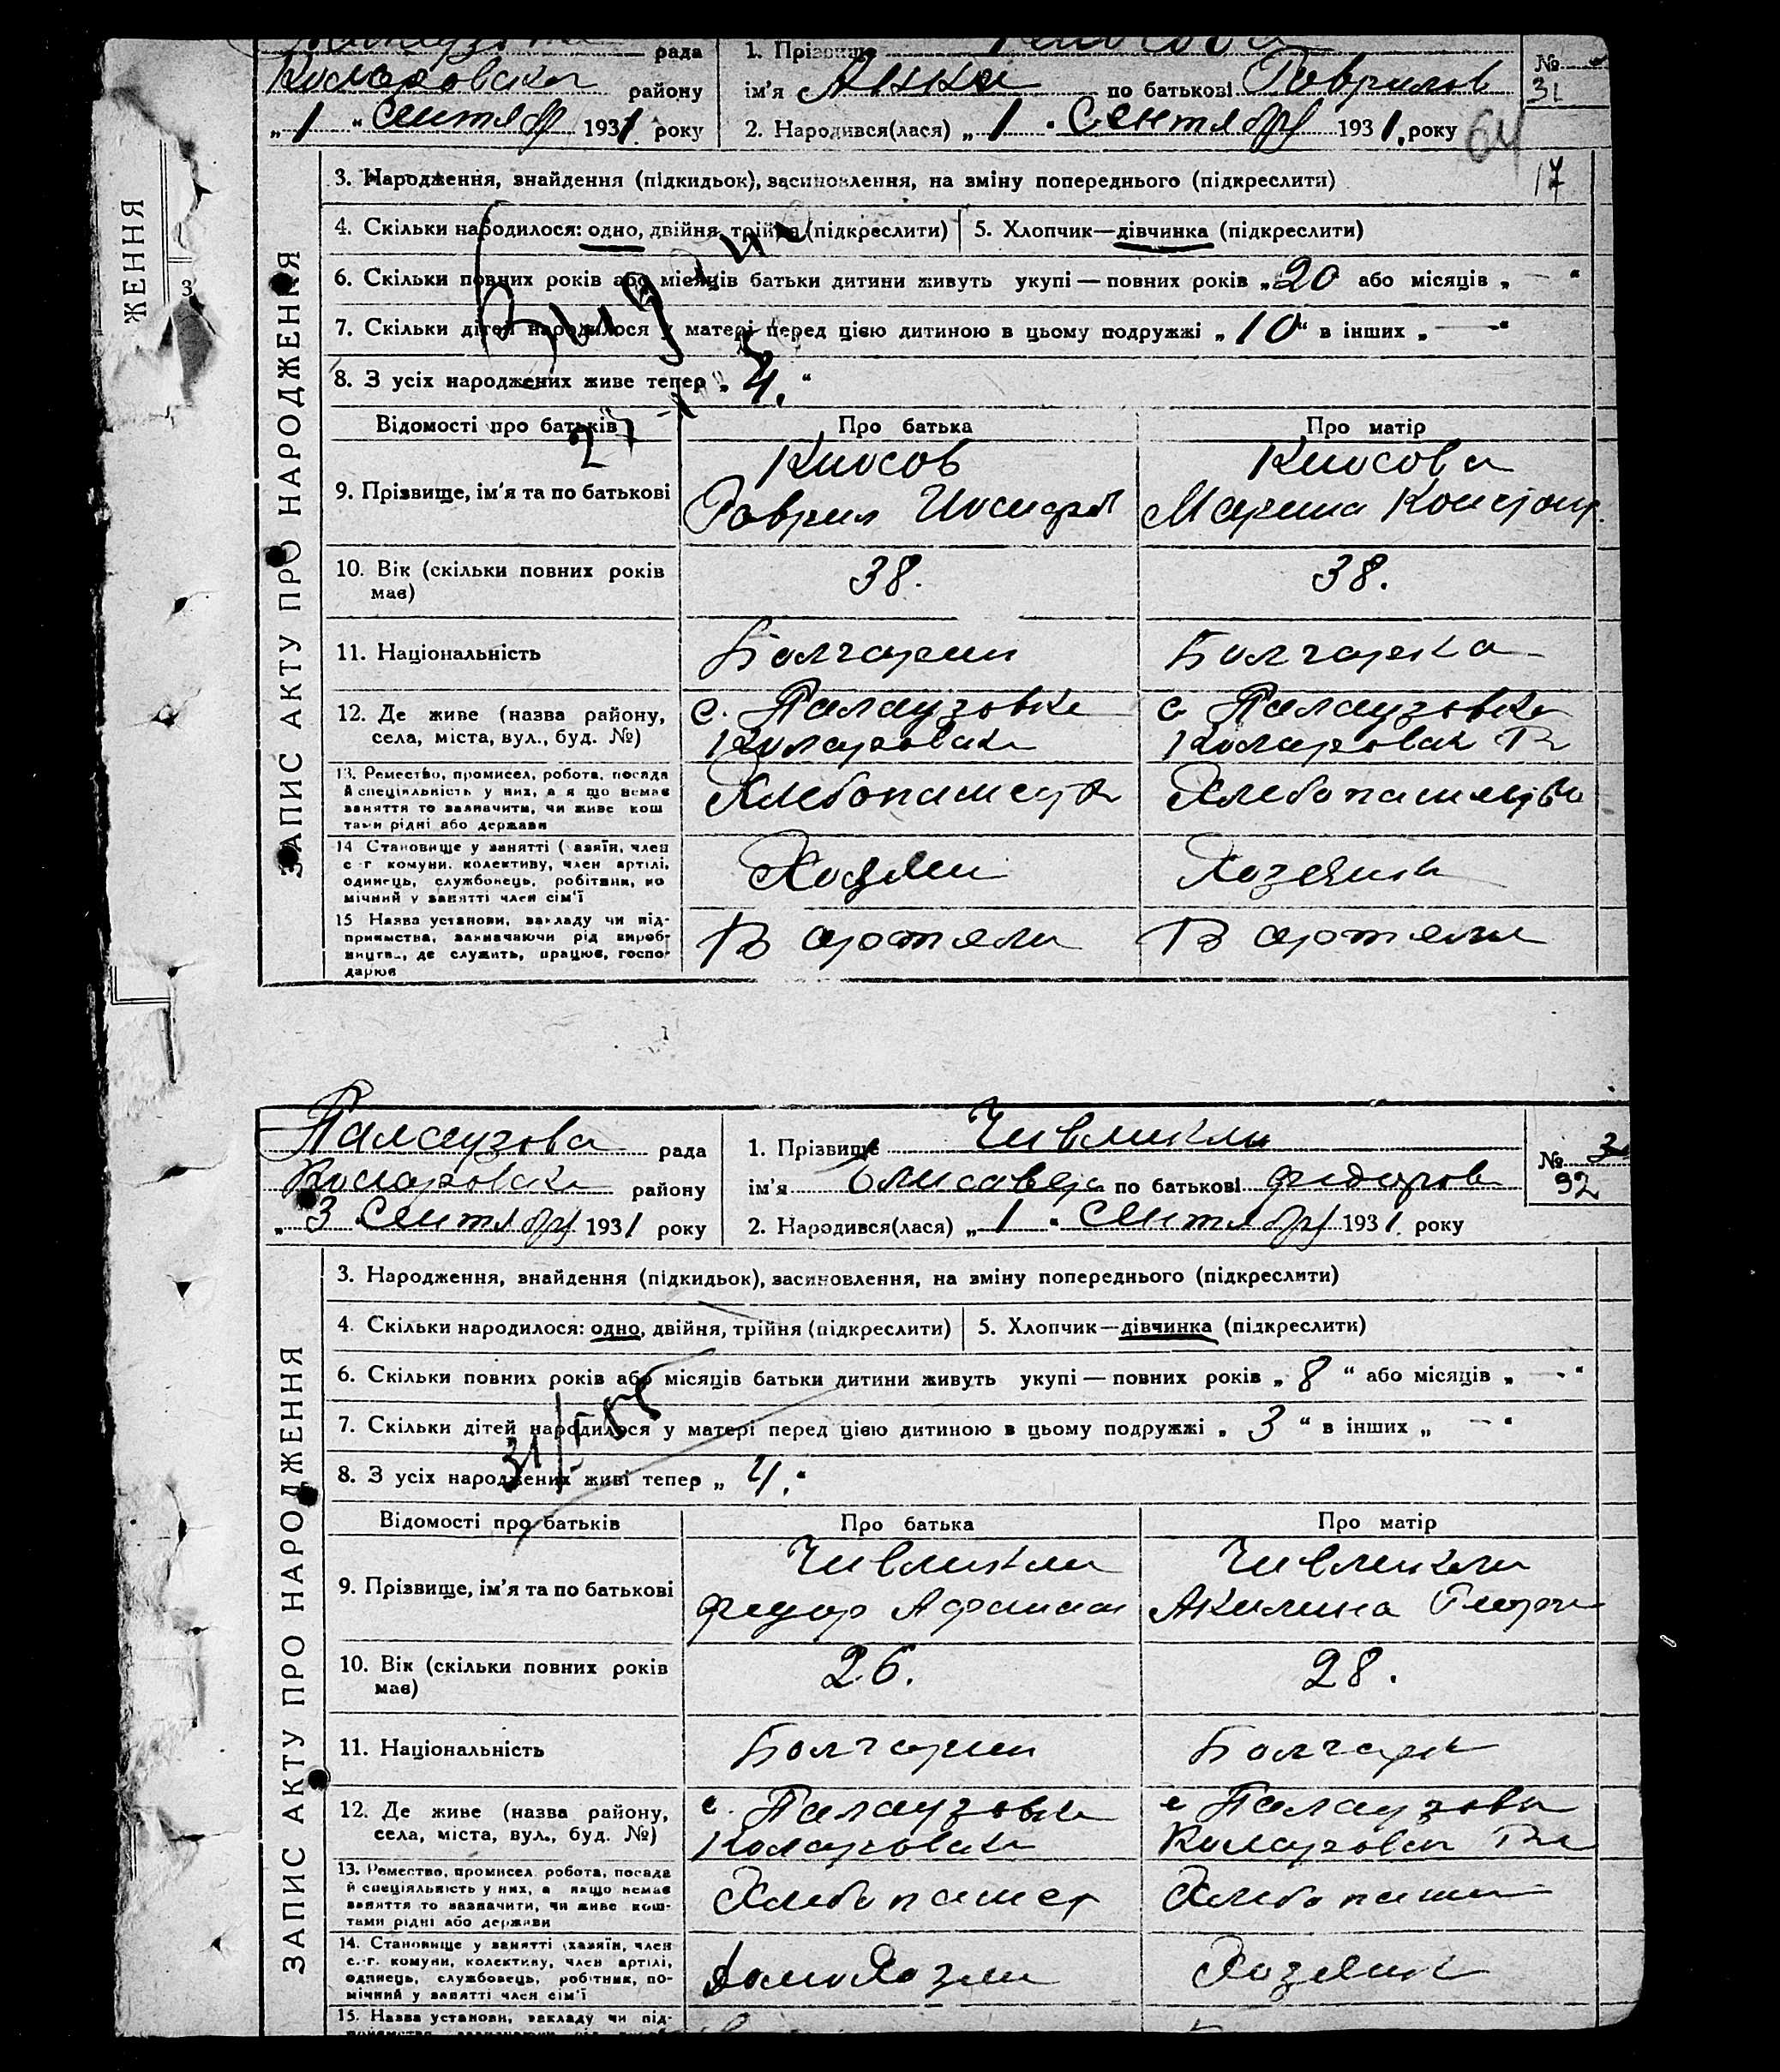 рада
Коларовска району
„ 1 “ Сентябр 1931 року
1. Прізвище
ім'я Анна по батькові Гаврилов
2. Народився(лася) „ 1 “ Сентябр 1931. року
№
31
64
17
ЖЕННЯ
З
ЗАПИС АКТУ ПРО НАРОДЖЕННЯ
3. Народження, знайдення (підкидьок), засиновлення, на зміну попереднього (підкреслити)
4. Скільки народилося: одно, двійня, трійня (підкреслити)
5. Хлопчик—дівчинка (підкреслити)
6. Скільки повних років або місяців батьки дитини живуть укупі — повних років „ 20 або місяців „ — “
7. Скільки дітей народилося у матері перед цією дитиною в цьому подружжі „ 10 “ в інших „ — “
8. З усіх народжених живе тепер „ 4. “
Відомості про батьків
Про батька
Про матір
9. Прізвище, ім'я та по батькові
Киосов
Гаврил Иосиф
Киосова
Марина Констан.
10. Вік (скільки повних років
має)
38.
38.
11. Національність
Болгарин
Болгарка
12. Де живе (назва району,
села, міста, вул., буд. №)
с. Палаузовка
Коларовска
с Палаузовка
Коларовск
13. Ремество, промисел, робота, посада
й спеціяльність у них, а якщо немає
заняття то зазначити, чи живе кош
тами рідні або держави
Хлебопашец
Хлебопашец
14 Становище у занятті (хазяїн, член
с г комуни, колективу, член артілі,
одинець, службовець, робітник, по
мічний у занятті член сім'ї
Хозяин
Хозяика
15 Назва установи, закладу чи під-
приємства, зазначаючи рід вироб-
ництв., де служить, працює, госпо-
дарює
В артели
В артели
Палаузова рада
Коларовска району
„ 3 “ Сентябр 1931 року
1. Прізвище Чивликли
ім'я Елисавета по батькові Федоров
2. Народився(лася) „ 1 “ Сентябр 1931. року
№
32
ЗАПИС АКТУ ПРО НАРОДЖЕННЯ
3. Народження, знайдення (підкидьок), засиновлення, на зміну попереднього (підкреслити)
4. Скільки народилося: одно, двійня, трійня (підкреслити)
5. Хлопчик—дівчинка (підкреслити)
6. Скільки повних років або місяців батьки дитини живуть укупі — повних років „ 8 “ або місяців „ — “
7. Скільки дітей народилося у матері перед цією дитиною в цьому подружжі „ 3 “ в інших „ — “
8. З усіх народжених живі тепер „ 4. “
Відомості про батьків
Про батька
Про матір
9. Прізвище, ім'я та по батькові
Чивликли
Федор Афанас
Чивликли
Акилина Георги
10. Вік (скільки повних років
має)
26.
28.
11. Національність
Болгарин
Болгарк
12. Де живе (назва району,
села, міста, вул., буд. №)
с. Палаузовка
Коларовска
с Палаузовк
Коларовск
13. Ремество, промисел робота, посада
й спеціяльність у них, а якщо немає
заняття то зазначити, чи живе кош-
тами рідні або держави
Хлебопашец
Хлебопаш
14. Становище у занятті (хазяїн, член
с.-г. комуни, колективу, член артілі,
одинець, службовець, робітник, по-
мічний у занятті член сім'ї
Домохозяи
Хозяик
15. Назва установи, закладу чи під-